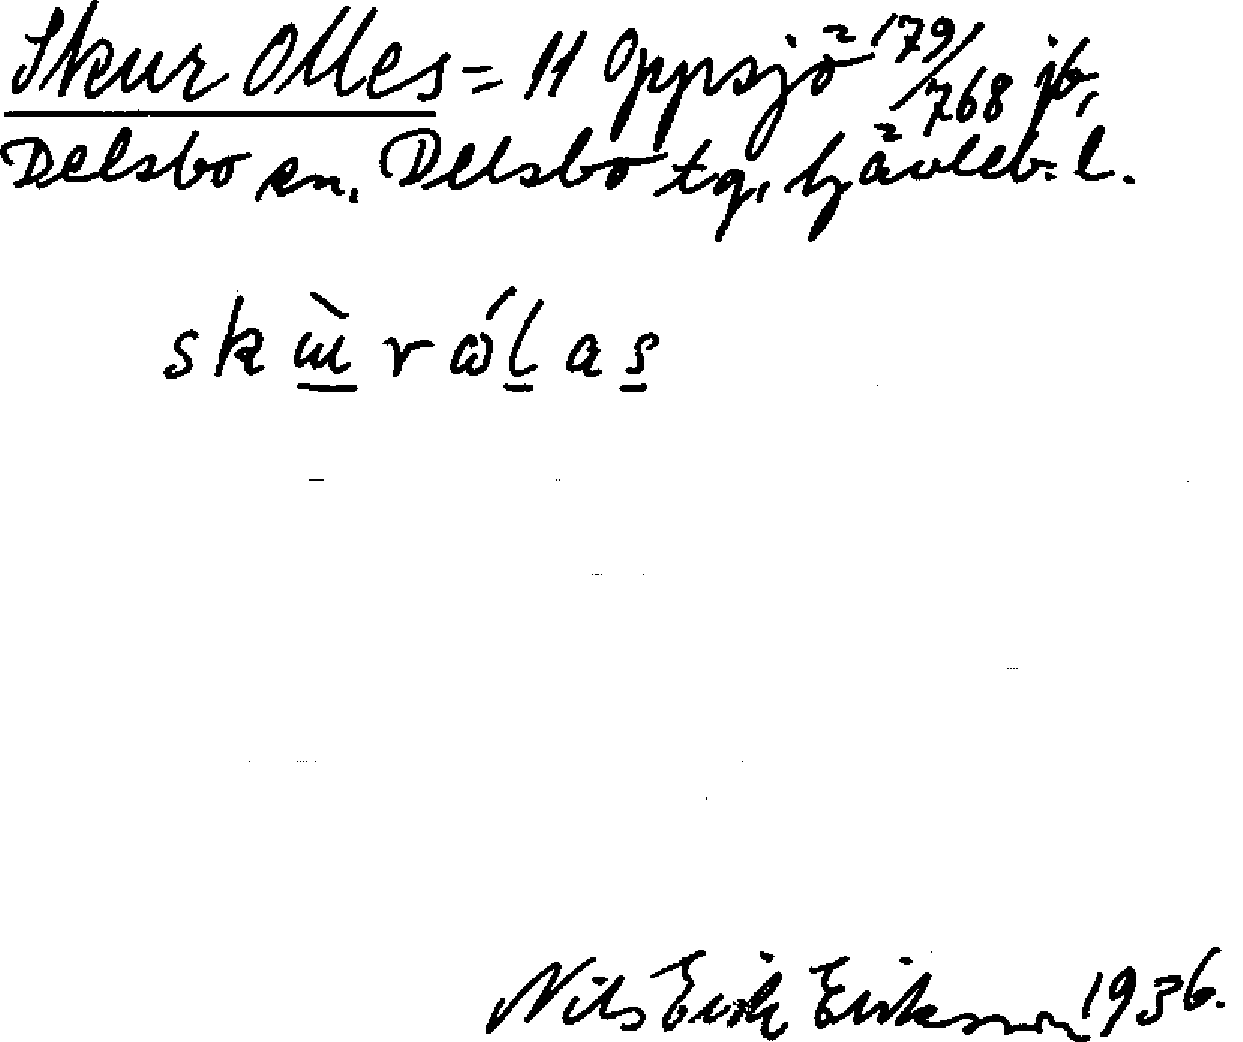 Skur Olles = 11 Oppsjö 179/768 jb,
Delsbo sn. Delsbo tg, Gävleb. l.
skɯ̀r ólas
Nils Erik Eriksson 1936.